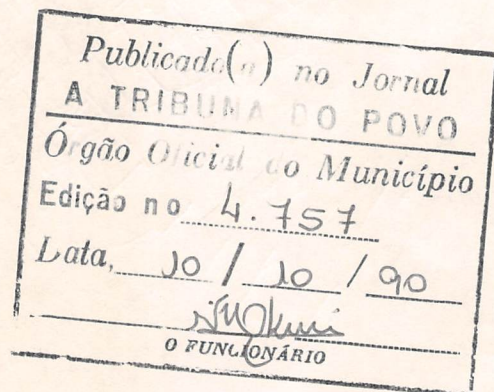 Publicado(a) no Jornal
A TRIBUNA DO POVO
Órgão Oficial do Município
Edição no 4.757
Data, 10 / 10 / 90
O FUNCIONÁRIO